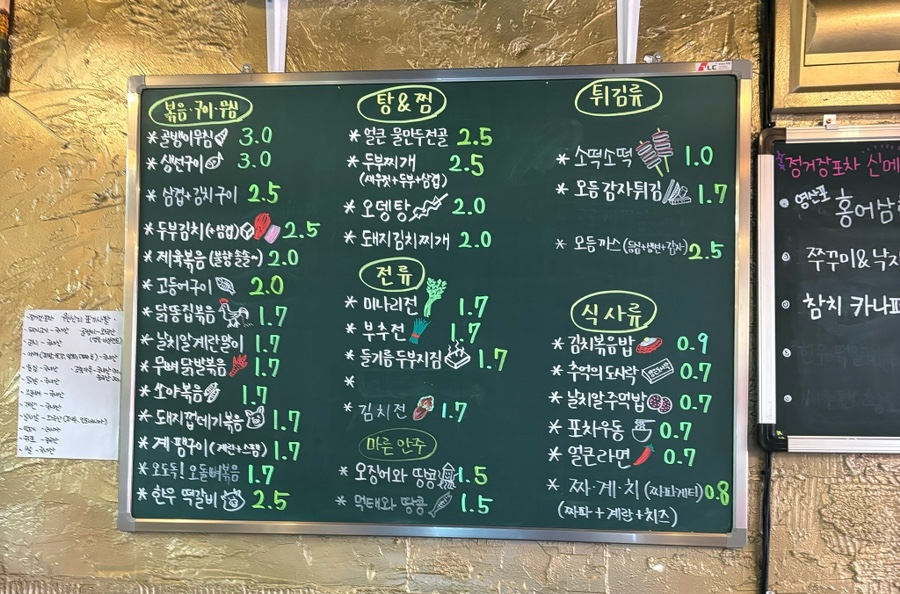 볶음·구이·무침
* 골뱅이무침 3.0
* 생선구이 3.0
* 삼겹+김치구이 2.5
* 두부김치(+삼겹) 2.5
* 제육볶음(불향솔솔~) 2.0
* 고등어구이 2.0
* 닭똥집볶음 1.7
* 날치알계란말이 1.7
* 무뼈닭발볶음 1.7
* 쏘야볶음 1.7
* 돼지껍데기볶음 1.7
* 계.팸구이(계란+스팸) 1.7
* 오도독! 오돌뼈볶음 1.7
* 한우 떡갈비 2.5
탕&찜
* 얼큰 물만두전골 2.5
* 두부찌개 2.5
(새우젓+두부+삼겹)
* 오뎅탕 2.0
* 돼지김치찌개 2.0
전류
* 미나리전 1.7
* 부추전 1.7
* 들기름두부지짐 1.7
*
* 김치전 1.7
마른안주
* 오징어와 땅콩 1.5
* 먹태와 땅콩 1.5
튀김류
* 소떡소떡 1.0
* 모듬감자튀김 1.7
* 모듬까스(등심+생선+감자) 2.5
식사류
* 김치볶음밥 0.9
* 추억의도시락 0.7
* 날치알주먹밥 0.7
* 포차우동 0.7
* 얼큰라면 0.7
* 짜·계·치(짜파게티) 0.8
(짜파+계란+치즈)
정거장포차 신메
영산포
홍어삼
쭈꾸미&낙지
참치 카나페
LC